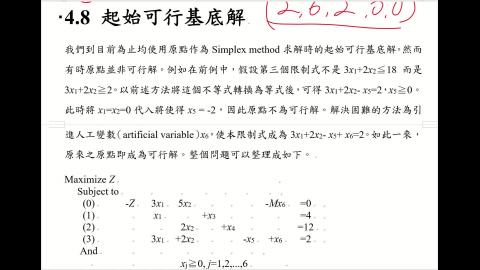 (2,6,2,0,0)
·4.8 起始可行基底解
我們到目前為止均使用原點作為 Simplex method 求解時的起始可行基底解，然而
有時原點並非可行解。例如在前例中，假設第三個限制式不是 3x1+2x2≦18 而是
3x1+2x2≧2。以前述方法將這個不等式轉換為等式後，可得 3x1+2x2- x5=2，x5≧0。
此時將 x1=x2=0 代入將使得 x5 = -2，因此原點不為可行解。解決困難的方法為引
進人工變數（artificial variable）x6，使本限制式成為 3x1+2x2- x5+ x6=2。如此一來，
原來之原點即成為可行解。整個問題可以整理成如下。
Maximize Z
Subject to
(0) -Z 3x1 5x2 -Mx6 =0
(1) x1 +x3 =4
(2) 2x2 +x4 =12
(3) 3x1 +2x2 -x5 +x6 =2
And
xj≧0, j=1,2,...,6